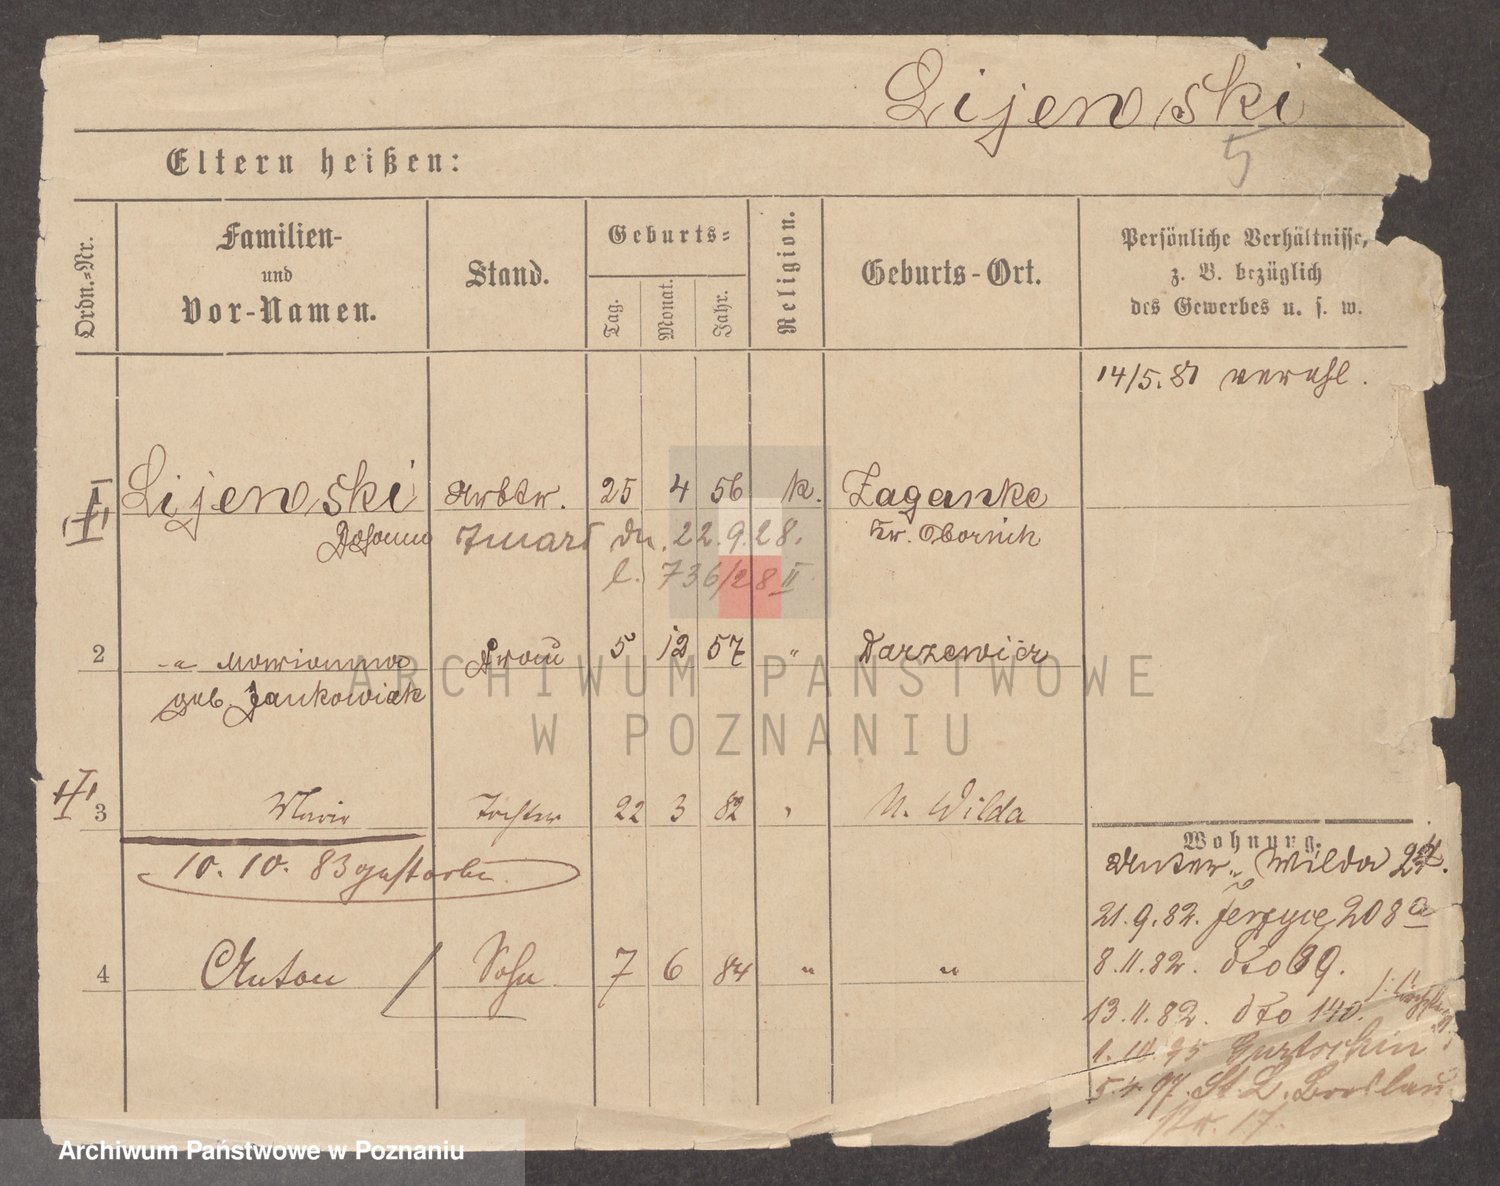 Lijewski
5
Eltern heißen:
Ordn.-Nr.
Familien-
und
Vor-Namen.
Stand.
Geburts-
Tag.
Monat.
Jahr.
Religion.
Geburts-Ort.
Persönliche Verhältnisse,
z. B. bezüglich
des Gewerbes u. s. w.
14/5. 81 verehl.
Lijewski Arbtr. 25 4 56 k. Zaganke
Johann Zmarł dn. 22.9.28. Kr. Obornik
l. 736/28 II
2 -"- Marianna Frau 5 12 57 " Darzewicz
geb Jankowiak
3 Marie Tochter 22 3 82 " U. Wilda
10. 10. 83 gestorben
4 Anton / Sohn 7 6 84 " "
Wohnung.
Unter-Wilda
21.9.82. Jerzyce 208 a
8.11.82. dto 89.
13.11.82. dto 140.
95 Gurtschin
5.4.97. St. L. Breslau
Nr. 17.
ARCHIWUM PAŃSTWOWE
W POZNANIU
Archiwum Państwowe w Poznaniu